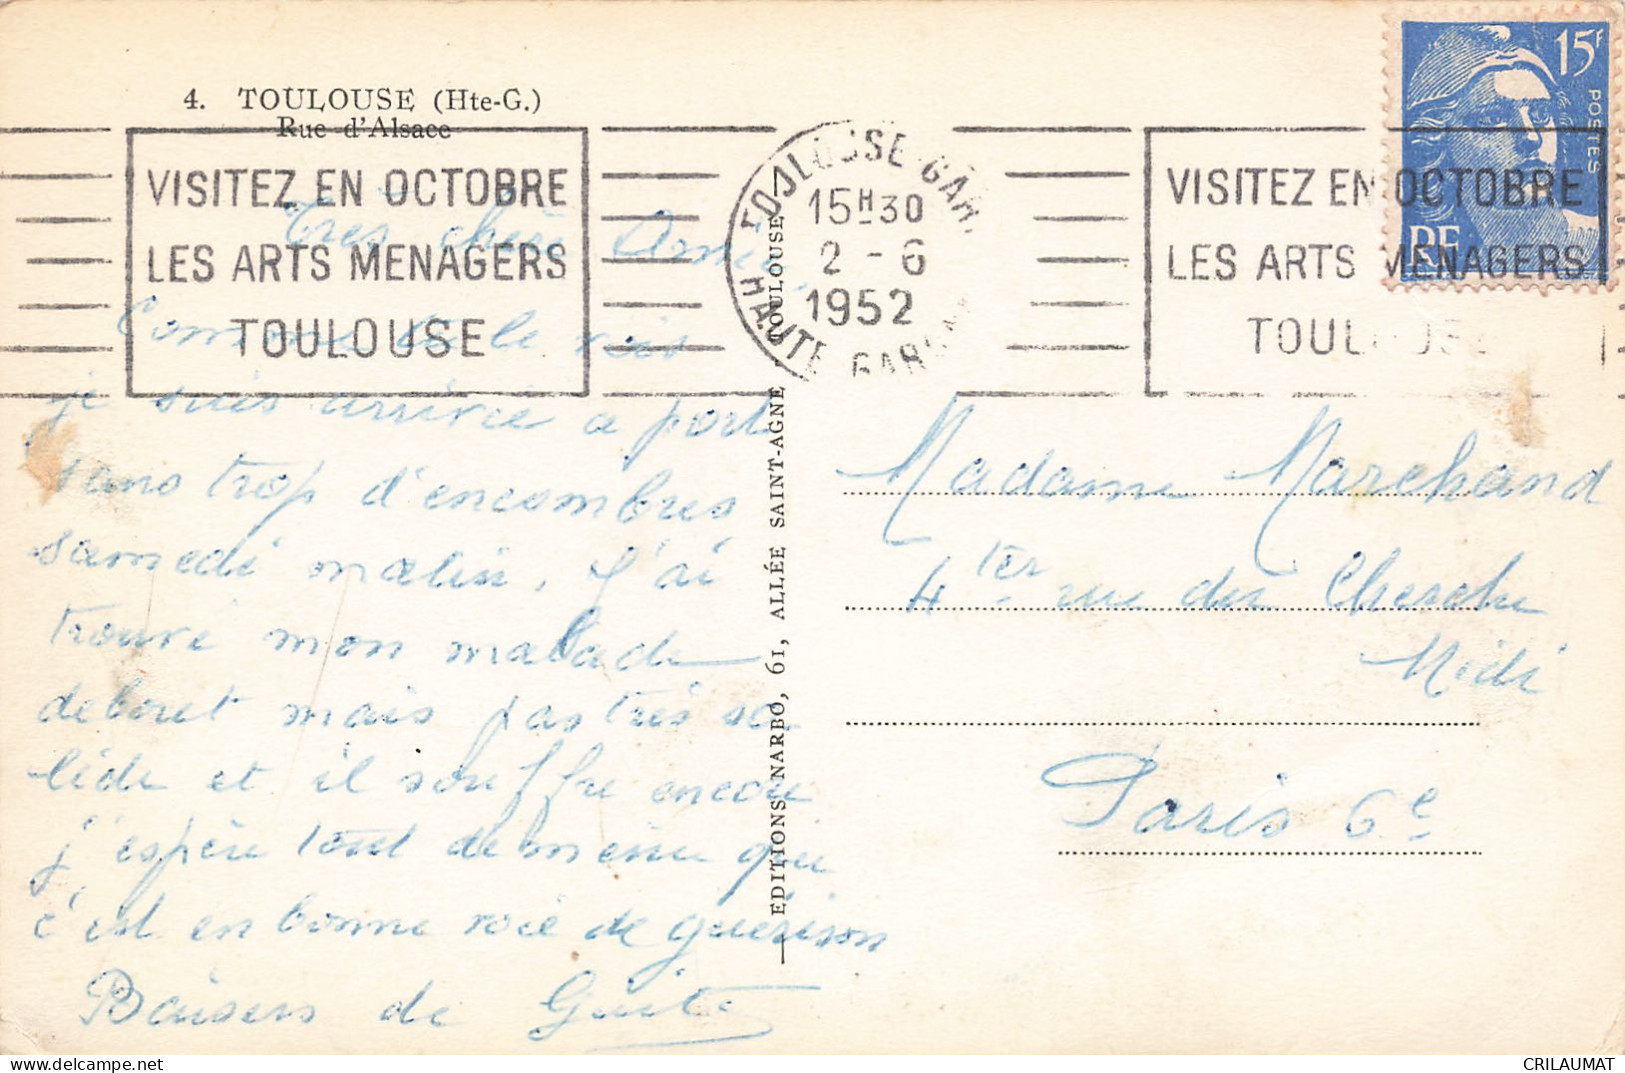 4. TOULOUSE (Hte-G.)
Rue d'Alsace
VISITEZ EN OCTOBRE
LES ARTS MENAGERS
TOULOUSE
TOULOUSE-GARE
15H30
2 - 6
1952
HAUTE GARONNE
VISITEZ EN OCTOBRE
LES ARTS MENAGERS
TOULOUSE
15F
POSTES
RF
Très chère Amie,
Comme le vois
je suis arrivée a port
sans trop d'encombres
samedi matin. J'ai
trouvé mon malade
debout mais pas très so
lide et il souffre encore
j'espère tout de même que
c'est en bonne voie de guérison
Baisers de Guite
EDITIONS NARBO, 61, ALLÉE SAINT-AGNE, TOULOUSE
Madame Marchand
4 ter rue du Cherche
Midi
Paris 6e
delcampe.net
CRILAUMAT